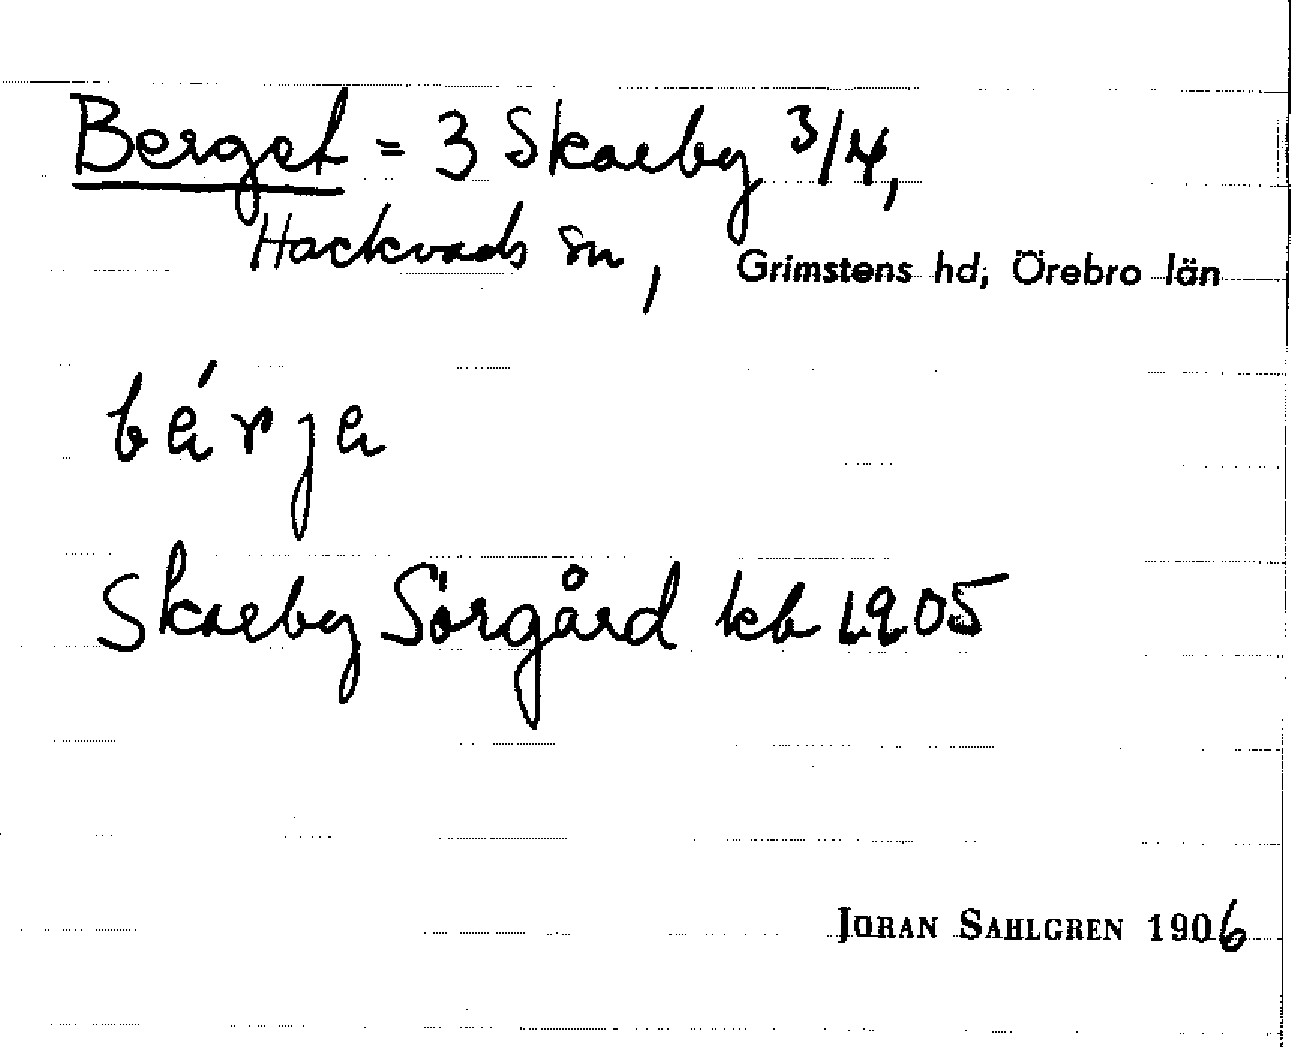 Berget = 3 Skarby 3/4,
Hackvads sn, Grimstens hd, Örebro län
bérje
Skarby Sörgård kb 1905
JÖRAN SAHLGREN 1906